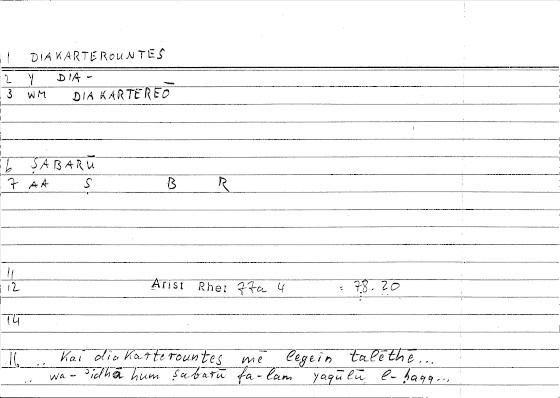 1 DIAKARTEROUNTES
2 Y DIA-
3 WM DIAKARTEREŌ
6 ṢABARŪ
7 AA Ṣ B R
11
12 Arist Rhet 77a 4 = 78.20
14
16 .. Kai diakarterountes mē legein talēthē...
.. wa-ʾidhā hum ṣabarū fa-lam yaqūlū l-ḥaqq...